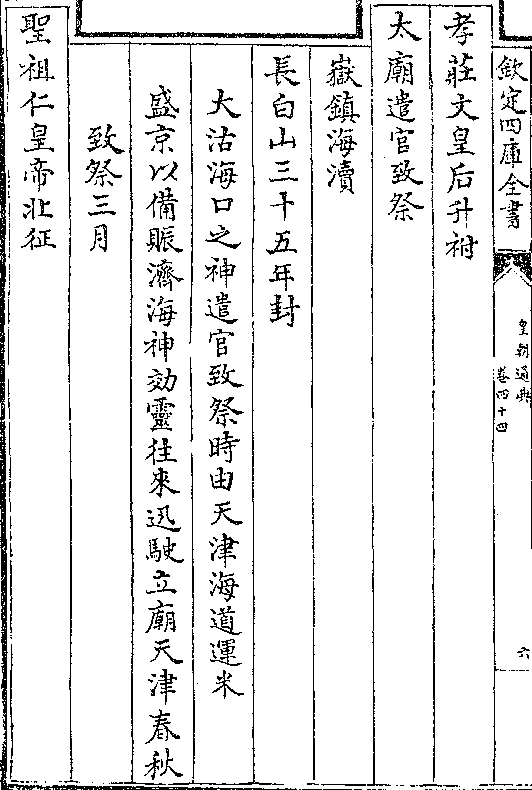 欽定四庫全書
皇朝通典
卷四十四
六
孝莊文皇后升祔
太廟遣官致祭
嶽鎮海瀆
長白山三十五年封
大沽海口之神遣官致祭時由天津海道運米
盛京以備賑濟海神効靈往來迅駛立廟天津春秋
致祭三月
聖祖仁皇帝北征